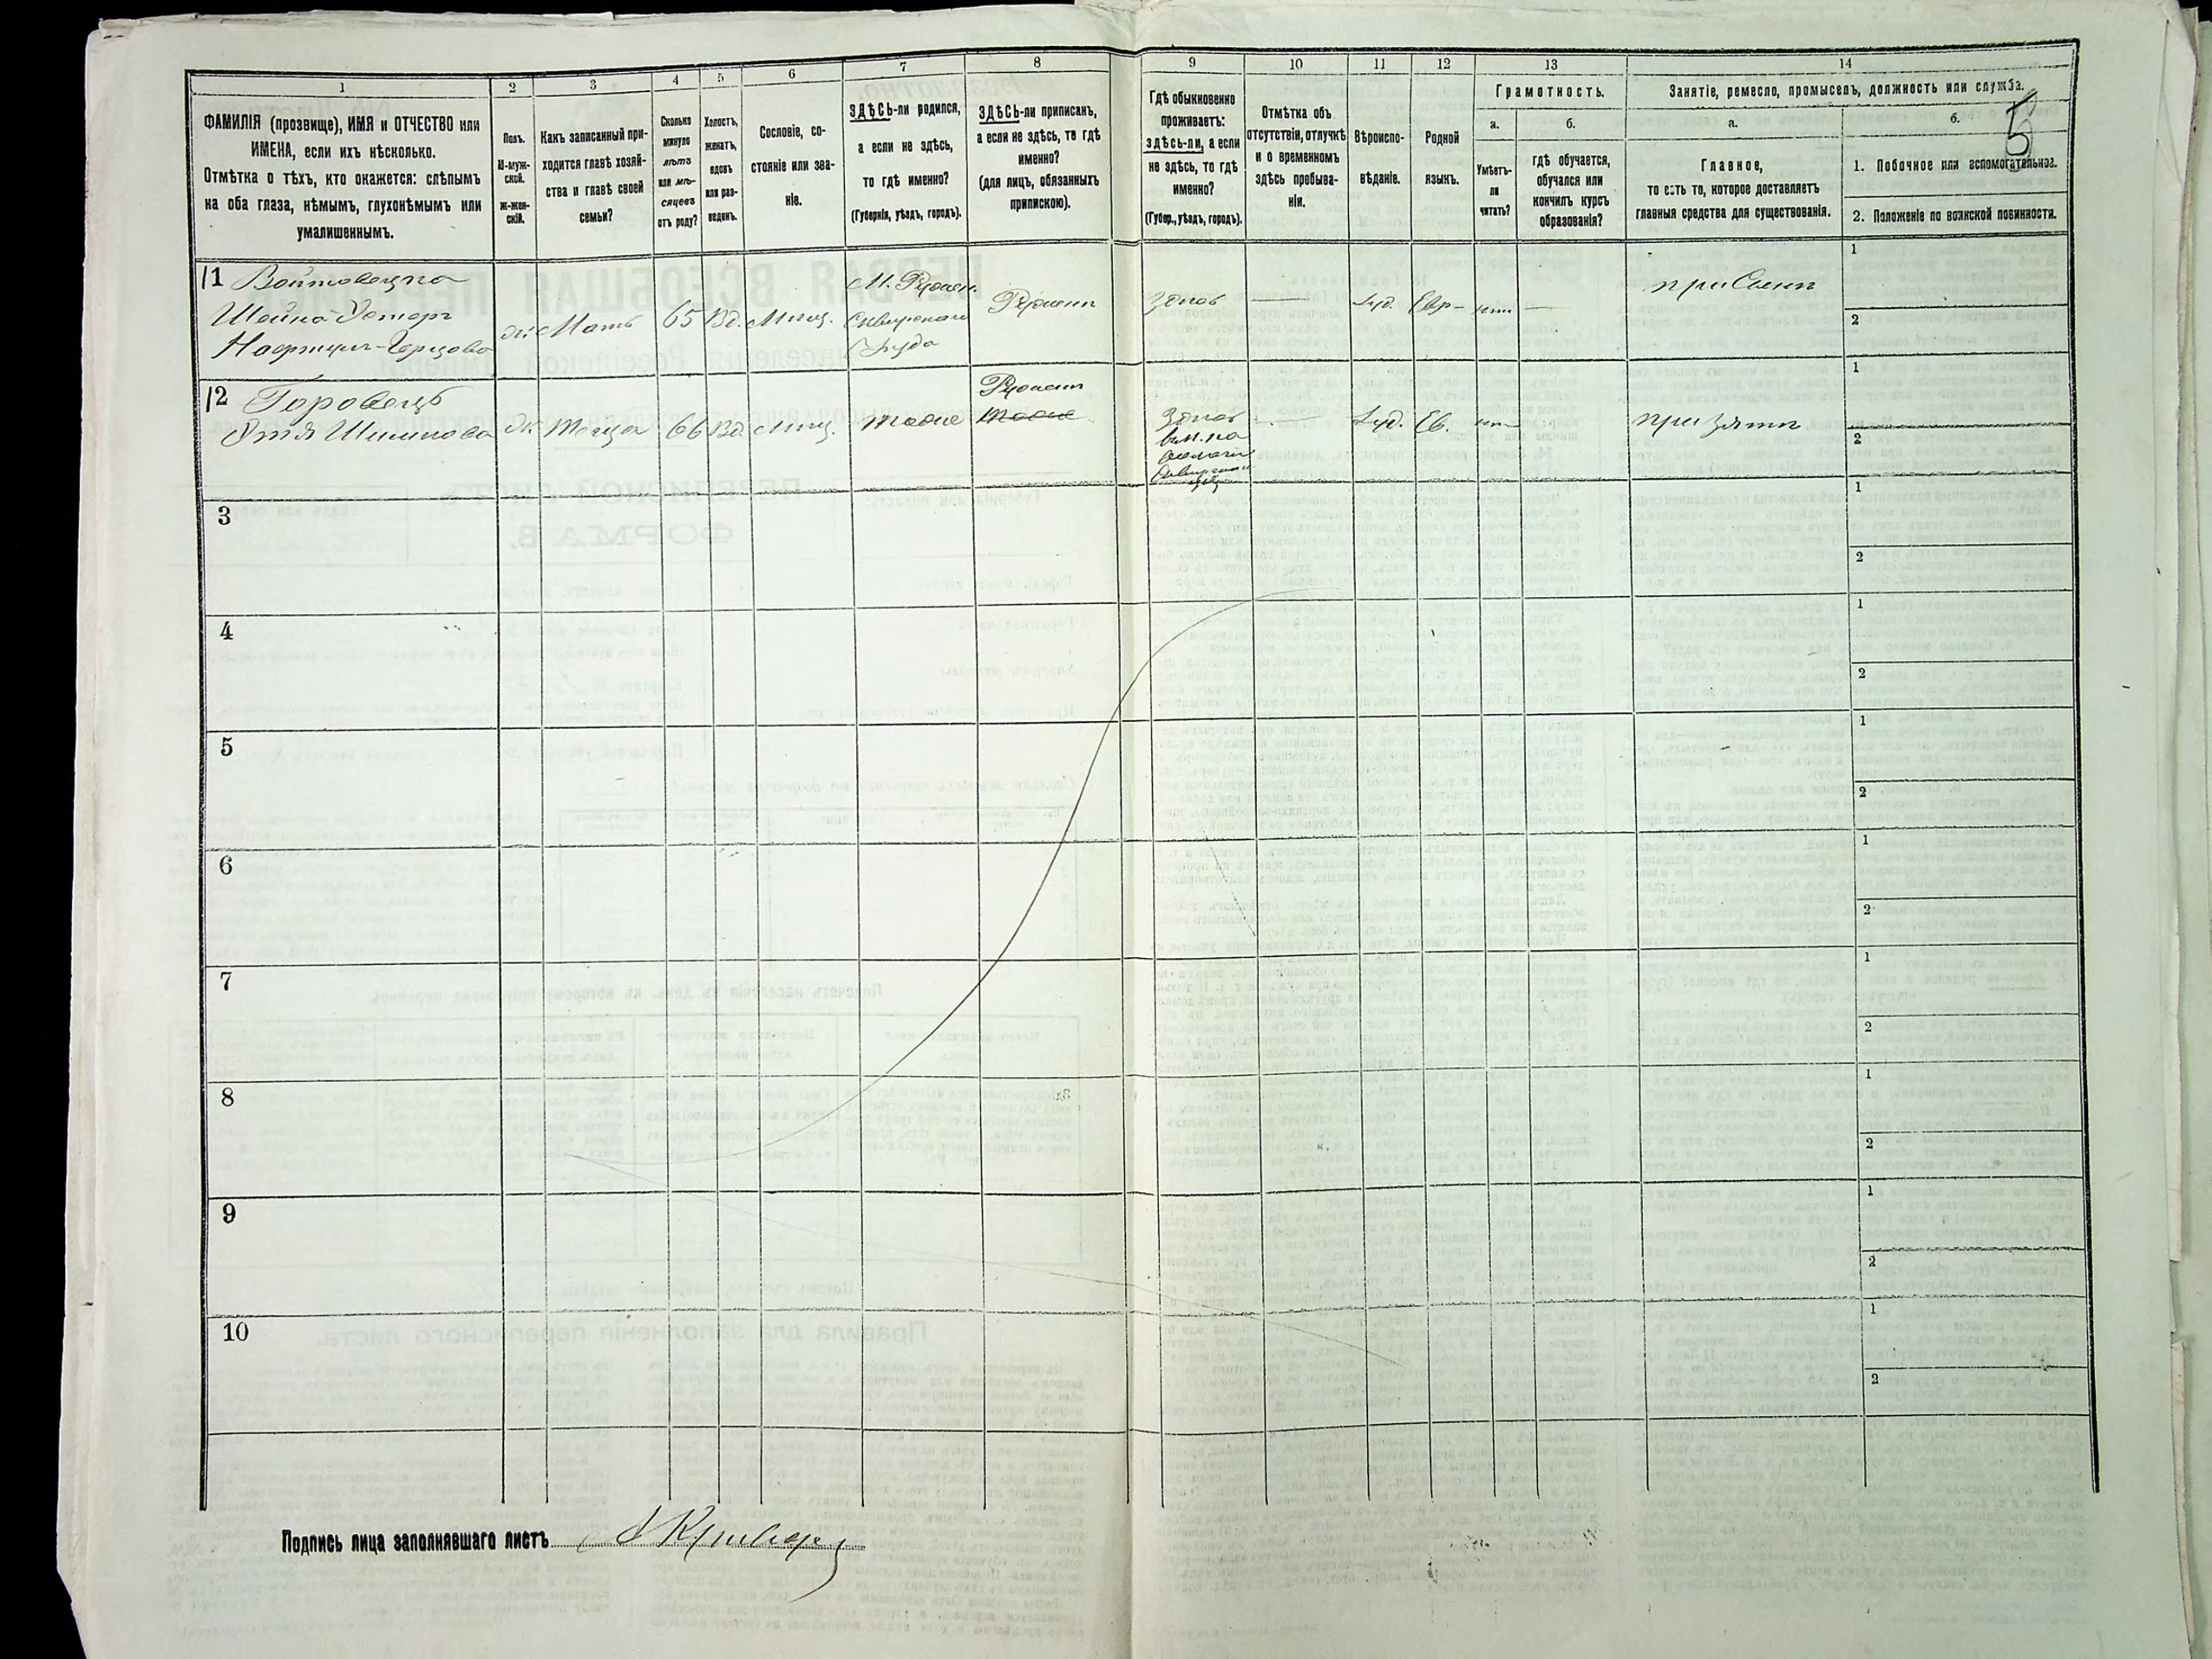 1
2
3
4
5
6
7
8
9
10
11
12
13
14
5
ФАМИЛІЯ (прозвище), ИМЯ и ОТЧЕСТВО или
ИМЕНА, если ихъ нѣсколько.
Отмѣтка о тѣхъ, кто окажется: слѣпымъ
на оба глаза, нѣмымъ, глухонѣмымъ или
умалишеннымъ.
Полъ.
М-муж-
ской.
Ж-жен-
скій.
Какъ записанный при-
ходится главѣ хозяй-
ства и главѣ своей
семьи?
Сколько
минуло
лѣтъ
или мѣ-
сяцевъ
отъ роду?
Холостъ,
женатъ,
вдовъ
или раз-
веденъ.
Сословіе, со-
стояніе или зва-
ніе.
ЗДѢСЬ-ли родился,
а если не здѣсь,
то гдѣ именно?
(Губернія, уѣздъ, городъ).
ЗДѢСЬ-ли приписанъ,
а если не здѣсь, то гдѣ
именно?
(для лицъ, обязанныхъ
припискою).
Гдѣ обыкновенно
проживаетъ:
здѣсь-ли, а если
не здѣсь, то гдѣ
именно?
(Губер., уѣздъ, городъ).
Отмѣтка объ
отсутствіи, отлучкѣ
и о временномъ
здѣсь пребыва-
ніи.
Вѣроиспо-
вѣданіе.
Родной
языкъ.
Грамотность.
а.
Умѣетъ-
ли
читать?
б.
гдѣ обучается,
обучался или
кончилъ курсъ
образованія?
Занятіе, ремесло, промыселъ, должность или служба.
а.
Главное,
то есть то, которое доставляетъ
главныя средства для существованія.
б.
1. Побочное или вспомогательное.
2. Положеніе по воинской повинности.
11 Войтовецка
Шейна-Эстеръ
Нафтули-Герцова
ж Мать 65 Вд. Мѣщ.
Сквирскаго
уѣзда
здѣсь — Іуд. Евр. —
при Сынѣ
1
2
12 Горовецъ
Этя Шлимова
ж Теща 66 Вд. Мѣщ. тоже
тоже
здѣсь
— Іуд. Ев.
при Зятѣ
1
2
3
1
2
4
1
2
5
1
2
6
1
2
7
1
2
8
1
2
9
1
2
10
1
2
Подпись лица заполнявшаго листъ